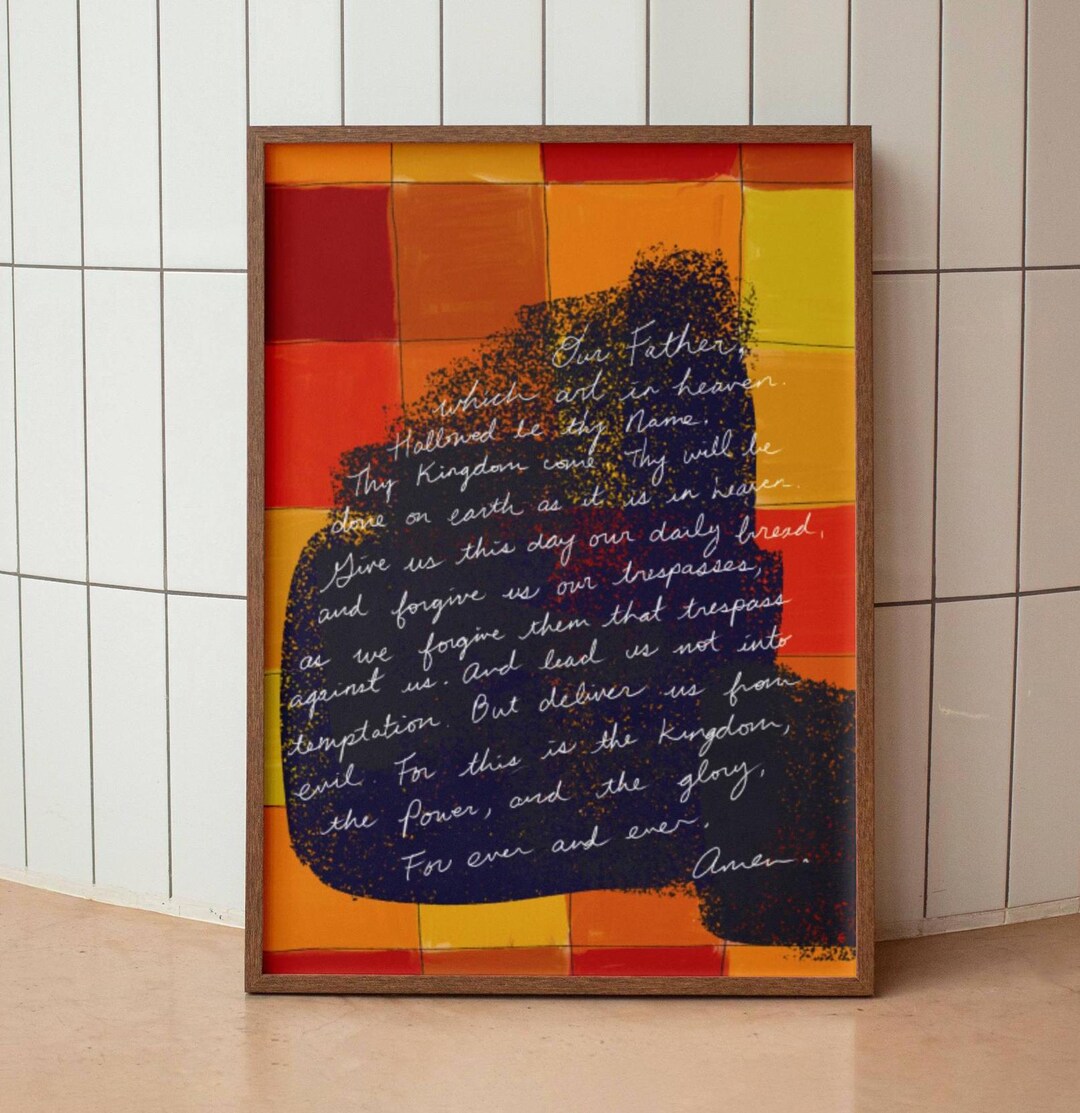 Our Father,
which art in heaven.
Hallowed be thy Name.
Thy Kingdom come Thy will be
done on earth as it is in heaven.
Give us this day our daily bread,
and forgive us our trespasses,
as we forgive them that trespass
against us. And lead us not into
temptation. But deliver us from
evil. For this is the Kingdom,
the Power, and the glory,
For ever and ever.
Amen.